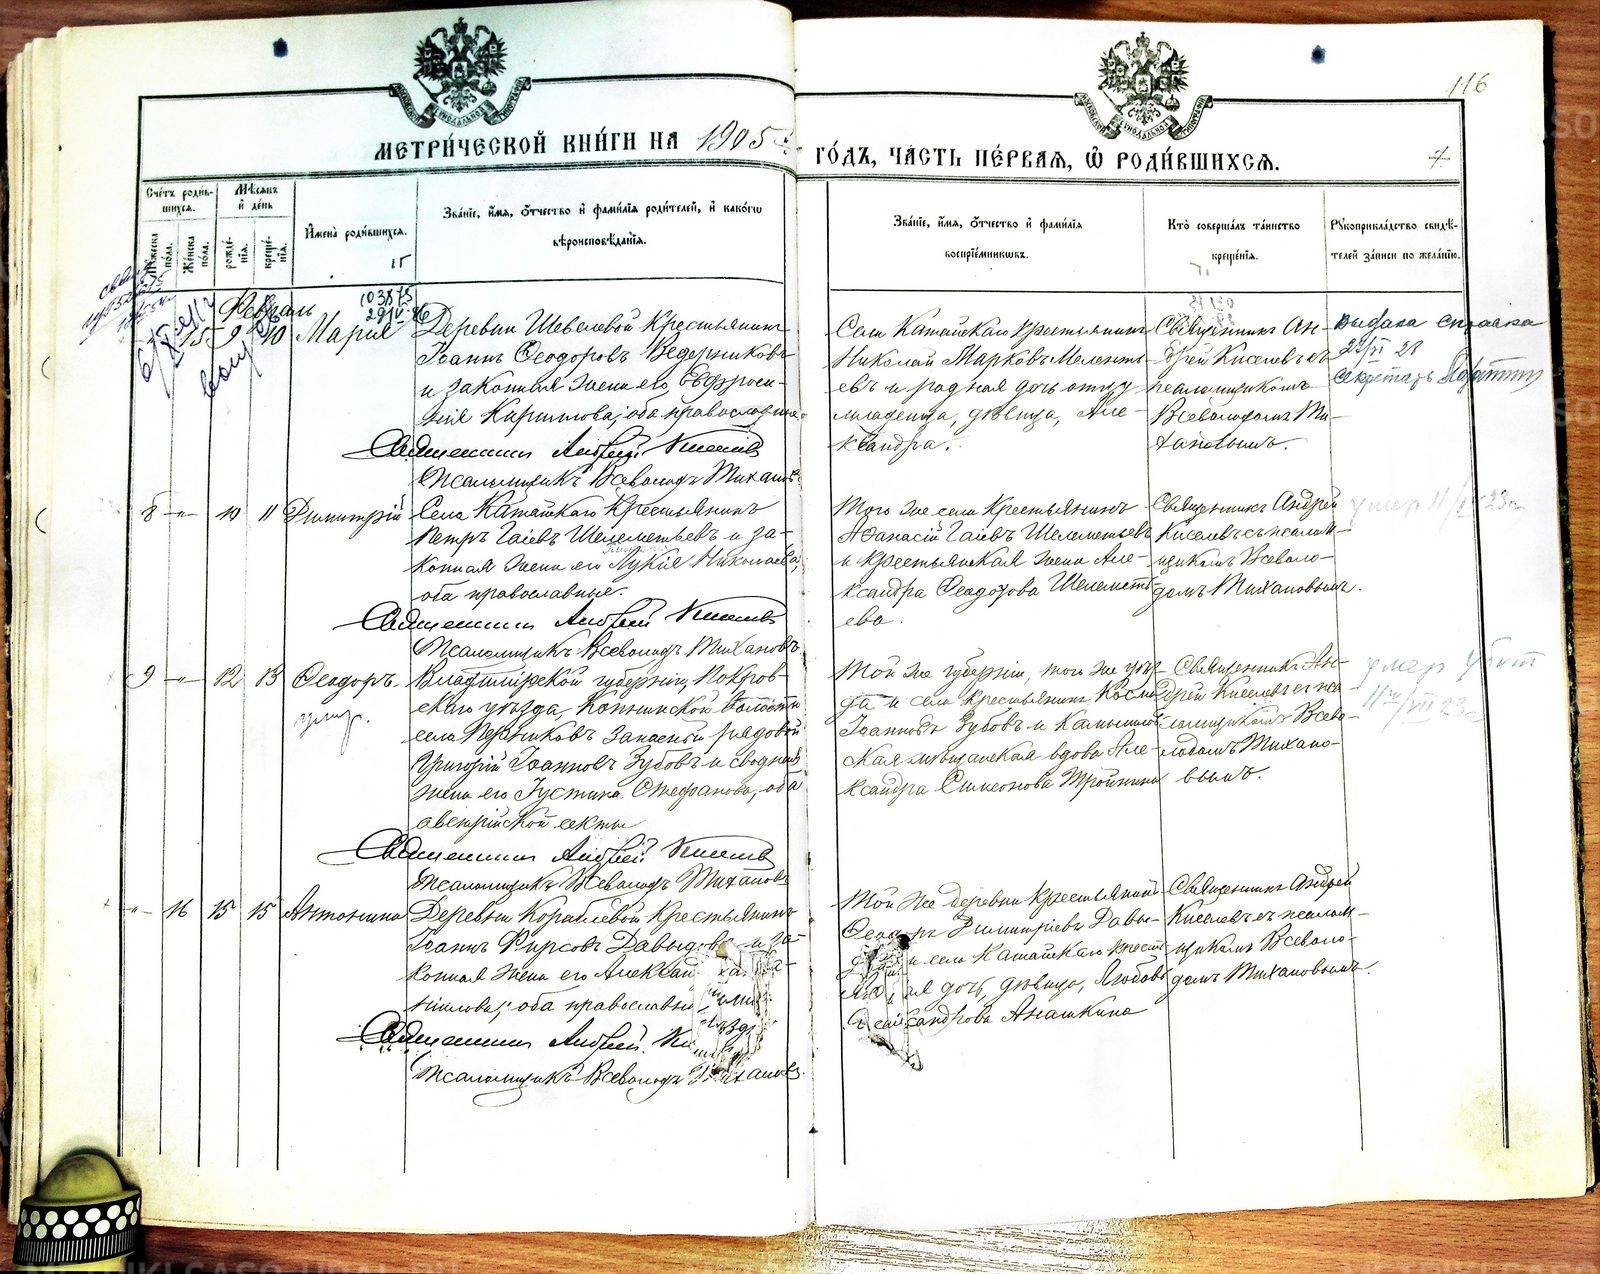 116
МЕТРИ́ЧЕСКОЙ КНИ́ГИ НА 1905
ГО́ДЪ, ЧА́СТЬ ПЕ́РВАЯ, Ѿ РОДИ́ВШИХСЯ.
7
Сче́тъ роди́в-
шихся.
Мѣсяцъ
и де́нь
Му́жеска по́ла.
Же́нска по́ла.
рожде́-
нія.
креще́-
нія.
Имена̀ роди́вшихся.
Зва́ніе, и́мя, о́тчество и фами́лія роди́телей, и како́гѡ
вѣроисповѣ́данія.
Зва́ніе, и́мя, о́тчество и фами́лія
воспріе́мниковъ.
Кто̀ соверша́лъ та́инство
креще́нія.
Рукоприкла́дство свидѣ́-
телей за́писи по жела́нію.
Февраль
103875
15 9 10 Марія
Деревни Шевелевой крестьянинъ
Іоаннъ Ѳеодоровъ Ведерниковъ
и законная жена его Евфроси-
нія Кириллова, оба православные.
Священникъ Андрей Киселевъ
Псаломщикъ Всеволодъ Тихановъ
Села Катайскаго крестьянинъ
Николай Марковъ Мелентъ-
евъ и родная дочь отцу
младенца, дѣвица, Але-
ксандра.
Священникъ Ан-
дрей Киселевъ съ
псаломщикомъ
Всеволодомъ Ти-
хановымъ.
выдана справка
Секретарь
8 -"- 10 11 Димитрій
Села Катайскаго крестьянинъ
Петръ Гаіевъ Шелеметьевъ и за-
конная жена его Лукія Николаева,
оба православные.
Священникъ Андрей Киселевъ
Псаломщикъ Всеволодъ Тихановъ
Того же села крестьянинъ
Аѳанасій Гаіевъ Шелеметьевъ
и крестьянская жена Але-
ксандра Ѳеодорова Шелеметь-
ева.
Священникъ Андрей
Киселевъ съ псалом-
щикомъ Всеволо-
домъ Тихановымъ.
умер
9 -"- 12 13 Ѳеодоръ
умер.
Владимірской губерніи, Покров-
скаго уѣзда,
села запасный рядовой
Григорій Іоанновъ Зубовъ и сводная
жена его Іустина Стефанова, оба
австрійской секты
Священникъ Андрей Киселевъ
Псаломщикъ Всеволодъ Тихановъ
Той же губерніи, того же уѣз-
да и села крестьянинъ Косма
Іоанновъ Зубовъ и Камышлов-
ская мѣщанская вдова Але-
ксандра Симеонова Тройнина
Священникъ Ан-
дрей Киселевъ съ пса-
ломщикомъ Всево-
лодомъ Тихано-
вымъ.
умер
-"- 16 15 15 Антонина
Деревни Кораблевой крестьянинъ
Іоаннъ Фирсовъ Давыдовъ и за-
конная жена его
оба православны
Священникъ Андрей
Псаломщикъ Всеволодъ Тихановъ
Той же деревни крестьянинъ
Димитріевъ Давы-
и села Катайскаго
дочь, дѣвица, Любовь
Анашкина
Священникъ Андрей
Киселевъ съ псалом-
щикомъ Всеволо-
домъ Тихановымъ.